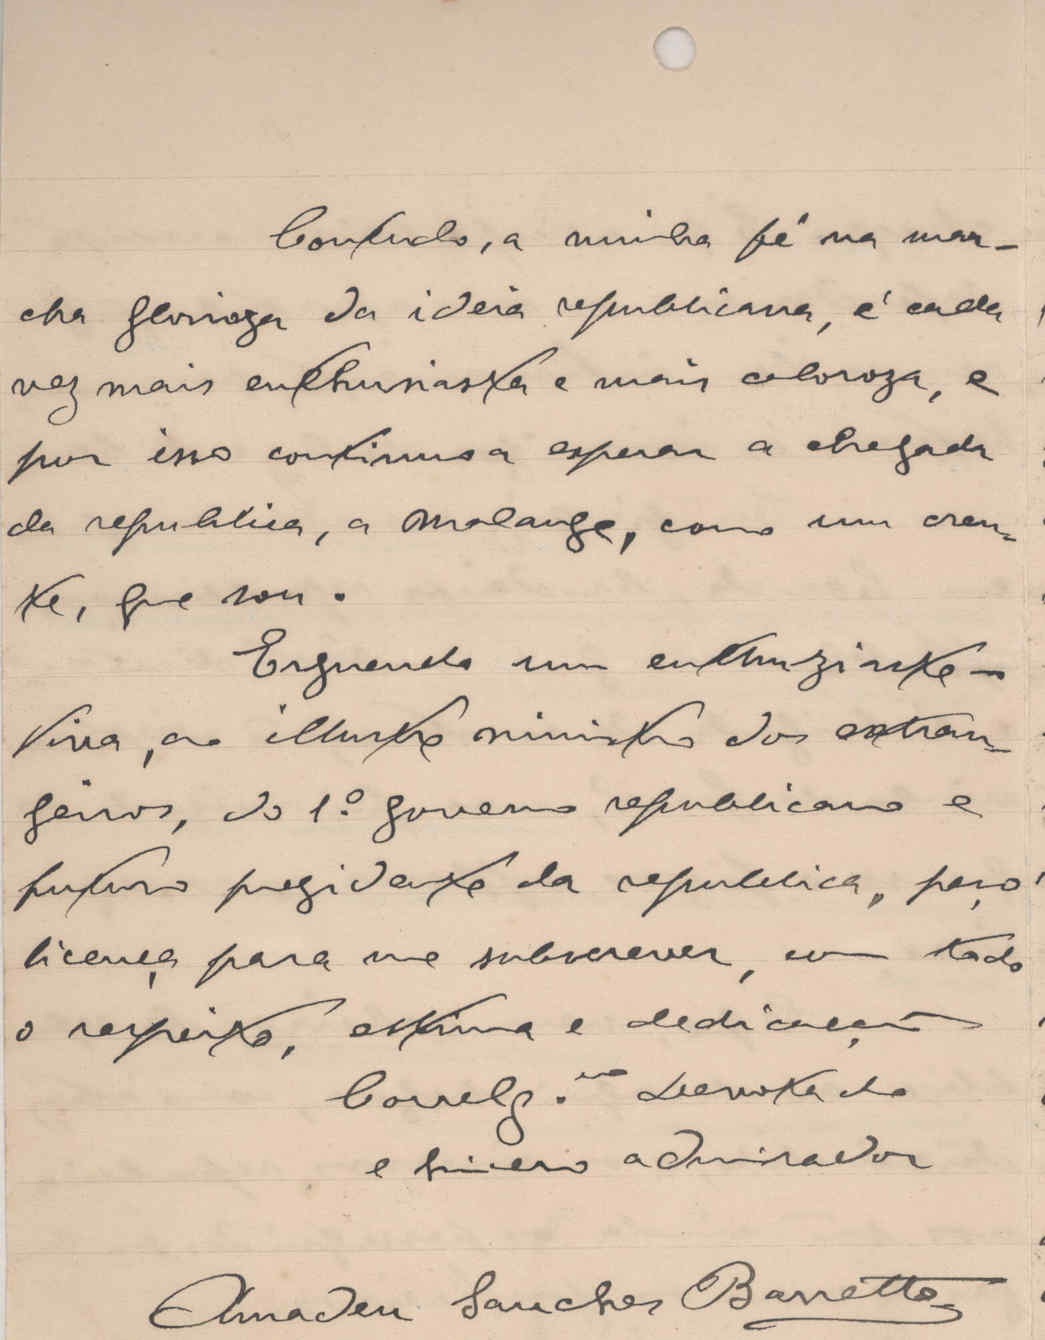 Contudo, a minha fé na mar-
cha glorioza da ideia republicana, é cada
vez mais enthusiasta e mais caloroza, e
por isso continuo a esperar a chegada
da republica, a Malange, como um cren-
te, que sou.
Erguendo um enthuziaste
viva, ao illustre ministro dos extran-
geiros, do 1º governo republicano e
futuro prezidente da republica, peço
licença para me subscrever, com todo
o respeito, estima e dedicação
Correlg.no devotado
e sincero admirador
Amadeu Sanches Barretto